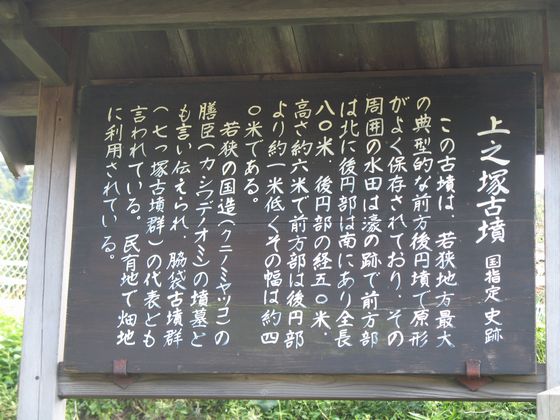 上之塚古墳 国指定 史跡
この古墳は、若狭地方最大
の典型的な前方後円墳で原形
がよく保存されており、その
周囲の水田は濠の跡で前方部
は北に後円部は南にあり全長
八〇米、後円部の経五〇米、
高さ約六米で前方部は後円部
より約一米低くその幅は約四
〇米である。
若狭の国造(クニノミヤツコ)の
膳臣(カシワデノオミ)の墳墓と
も言い伝えられ、脇袋古墳群
(七っ塚古墳群)の代表とも
言われている。民有地で畑地
に利用されている。